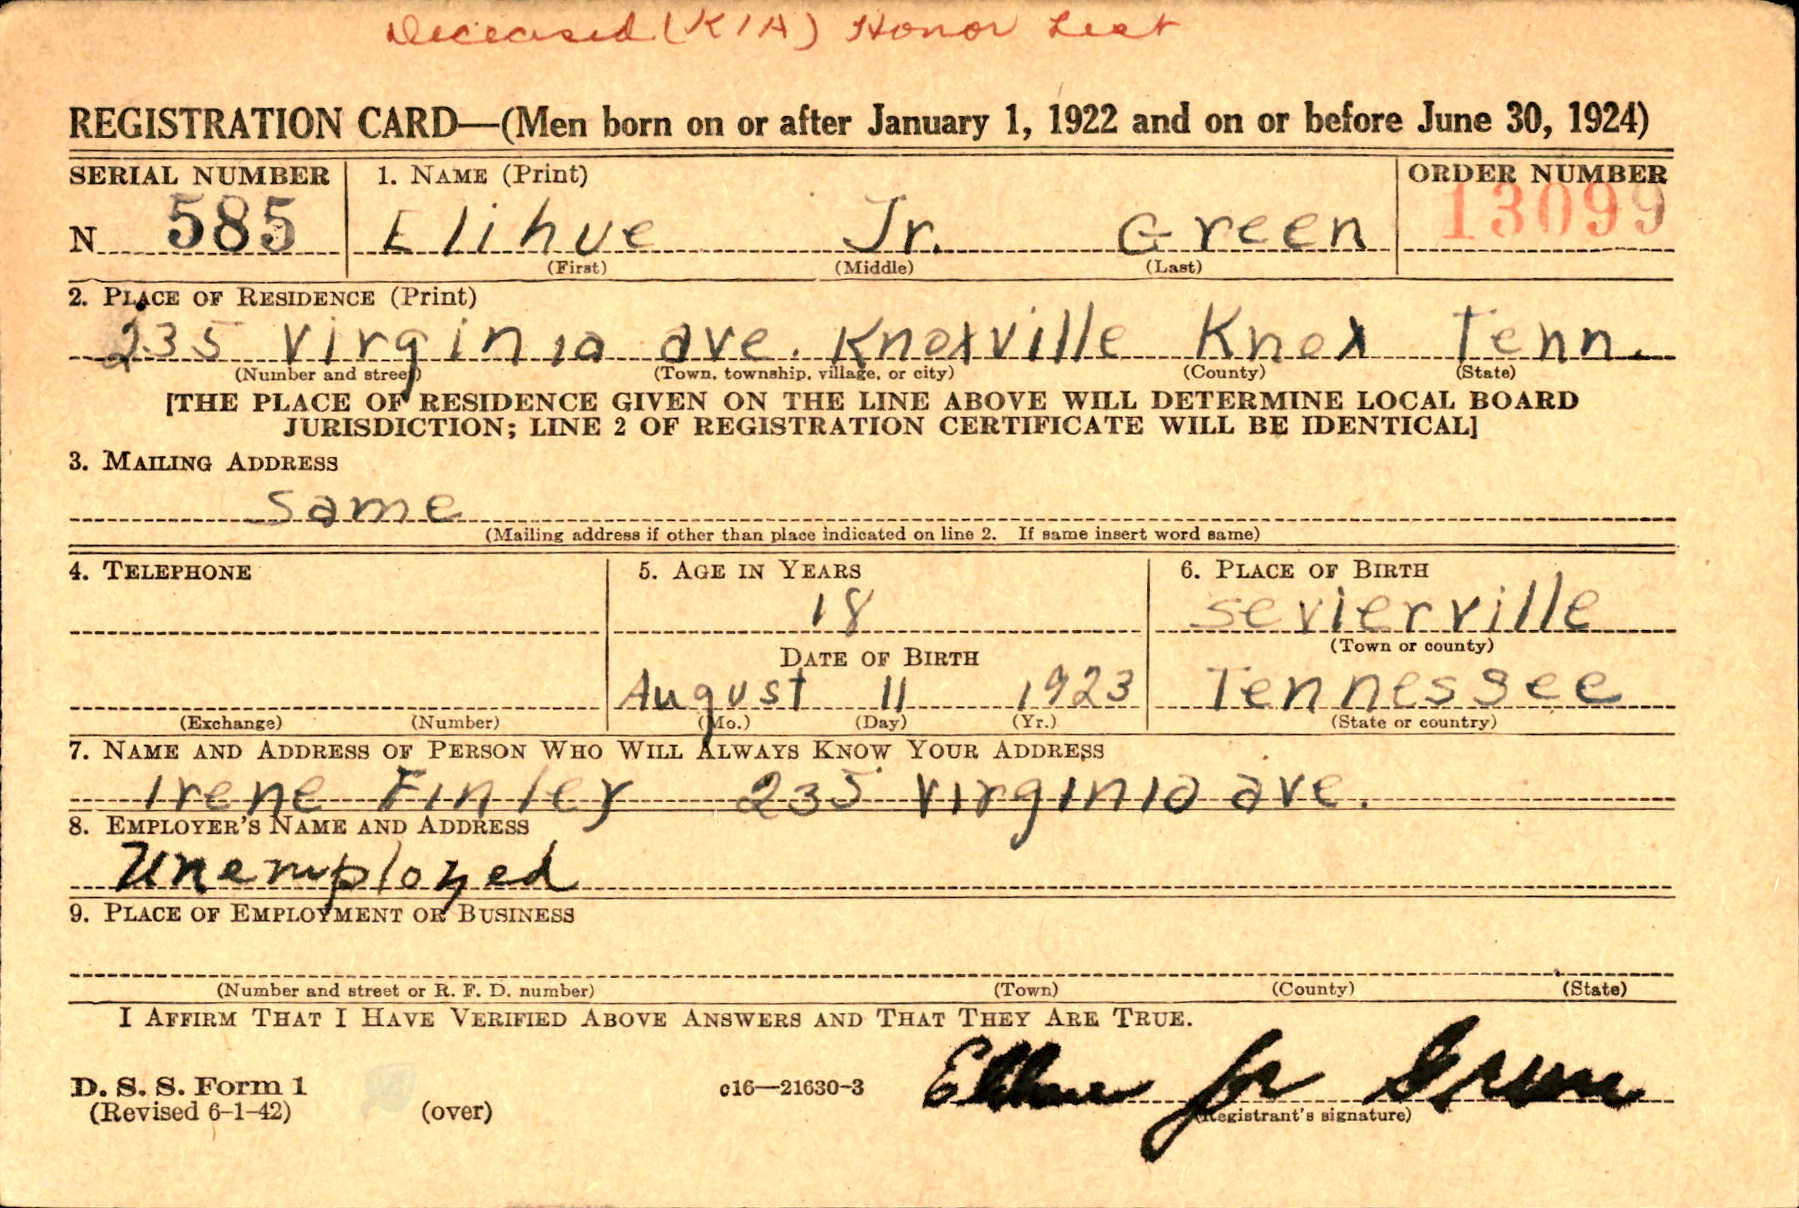 Deceased (KIA) Honor List
REGISTRATION CARD—(Men born on or after January 1, 1922 and on or before June 30, 1924)
SERIAL NUMBER 1. NAME (Print) ORDER NUMBER
N 585 Elihue Jr. Green 13099
(First) (Middle) (Last)
2. PLACE OF RESIDENCE (Print)
235 Virginia ave. Knoxville Knox Tenn.
(Number and street) (Town, township, village, or city) (County) (State)
[THE PLACE OF RESIDENCE GIVEN ON THE LINE ABOVE WILL DETERMINE LOCAL BOARD
JURISDICTION; LINE 2 OF REGISTRATION CERTIFICATE WILL BE IDENTICAL]
3. MAILING ADDRESS
Same
(Mailing address if other than place indicated on line 2. If same insert word same)
4. TELEPHONE 5. AGE IN YEARS 6. PLACE OF BIRTH
18 Sevierville
DATE OF BIRTH (Town or county)
August 11 1923 Tennessee
(Exchange) (Number) (Mo.) (Day) (Yr.) (State or country)
7. NAME AND ADDRESS OF PERSON WHO WILL ALWAYS KNOW YOUR ADDRESS
Irene Finley 235 Virginia ave.
8. EMPLOYER'S NAME AND ADDRESS
Unemployed
9. PLACE OF EMPLOYMENT OR BUSINESS
(Number and street or R. F. D. number) (Town) (County) (State)
I AFFIRM THAT I HAVE VERIFIED ABOVE ANSWERS AND THAT THEY ARE TRUE.
D. S. S. Form 1 c16—21630-3 Elihue Jr Green
(Revised 6-1-42) (over) (Registrant's signature)